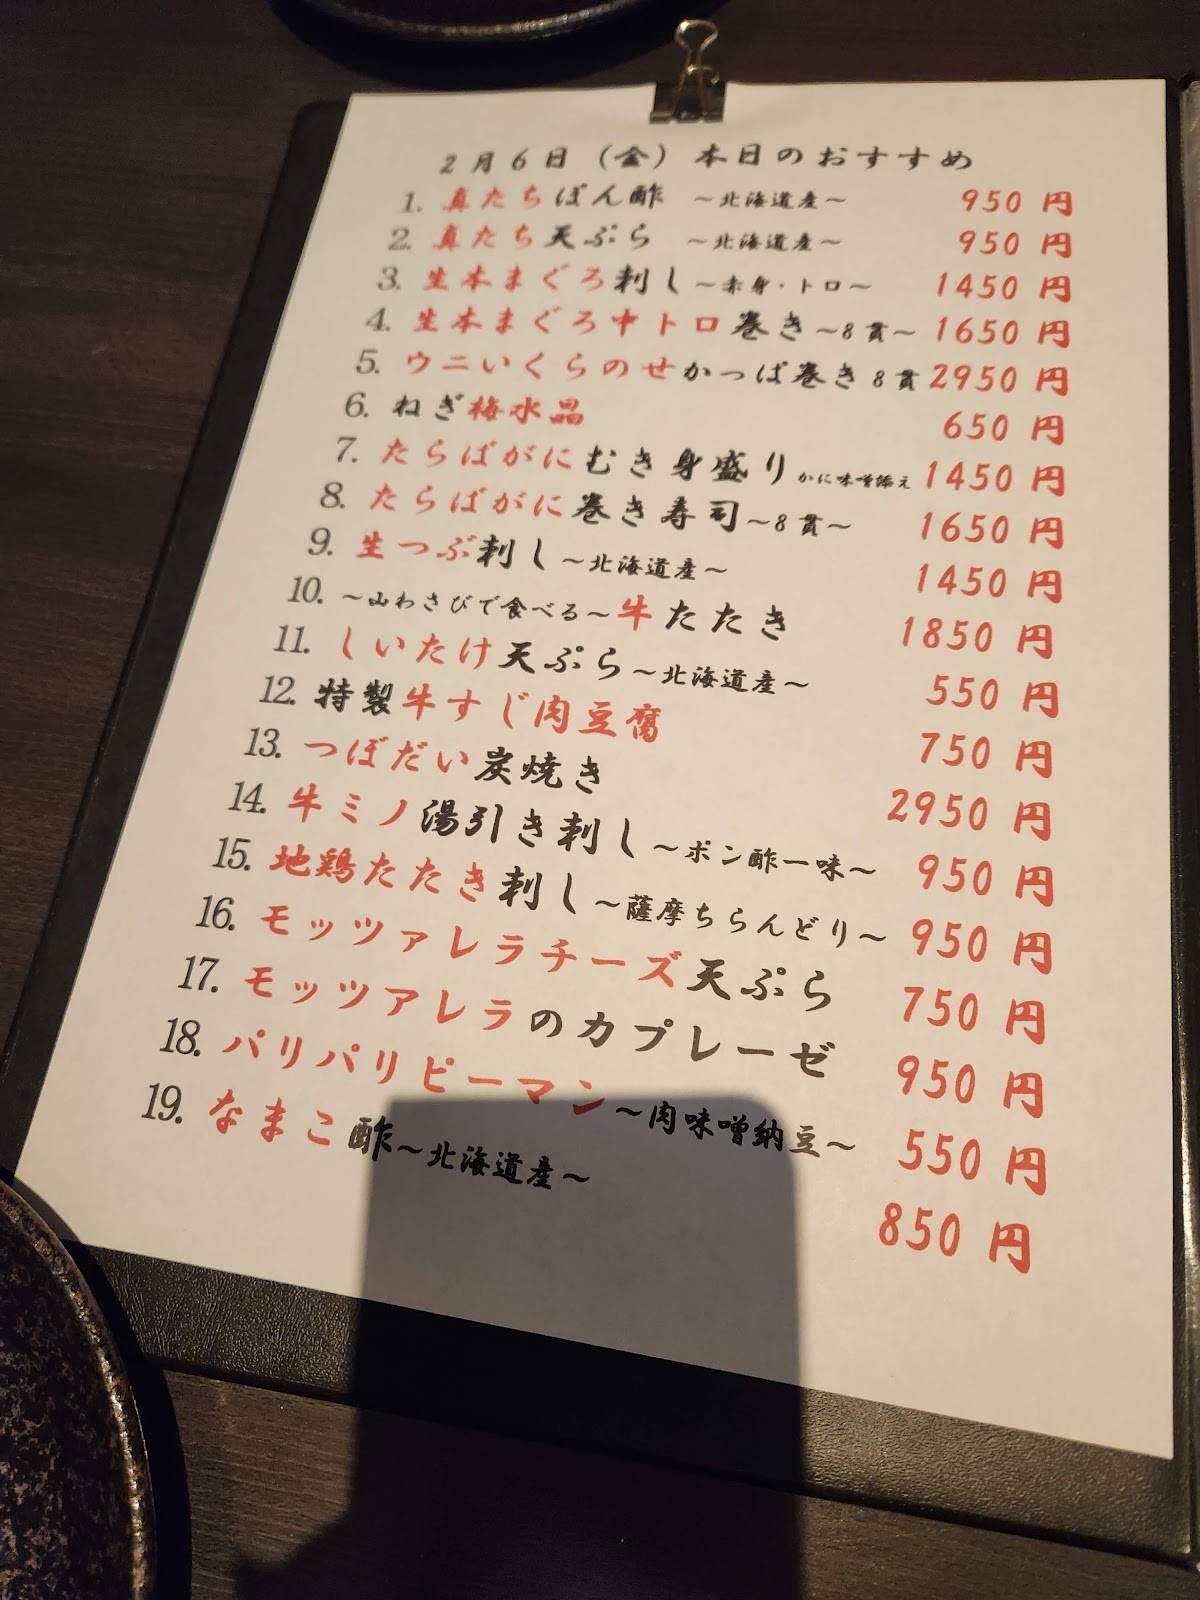 2月6日（金）本日のおすすめ
1. 真たちぽん酢 ～北海道産～ 950 円
2. 真たち天ぷら ～北海道産～ 950 円
3. 生本まぐろ刺し～赤身・トロ～ 1450 円
4. 生本まぐろ中トロ巻き～8貫～ 1650 円
5. ウニいくらのせかっぱ巻き8貫 2950 円
6. ねぎ梅水晶 650 円
7. たらばがにむき身盛りかに味噌添え 1450 円
8. たらばがに巻き寿司～8貫～ 1650 円
9. 生つぶ刺し～北海道産～ 1450 円
10. ～山わさびで食べる～牛たたき 1850 円
11. しいたけ天ぷら～北海道産～ 550 円
12. 特製牛すじ肉豆腐 750 円
13. つぼだい炭焼き 2950 円
14. 牛ミノ湯引き刺し～ポン酢一味～ 950 円
15. 地鶏たたき刺し～薩摩ちらんどり～ 950 円
16. モッツァレラチーズ天ぷら 750 円
17. モッツアレラのカプレーゼ 950 円
18. パリパリピーマン～肉味噌納豆～ 550 円
19. なまこ酢～北海道産～ 850 円